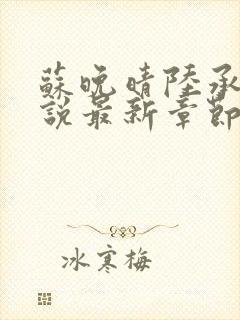 蘇晚晴陸承
說最新章節
冰寒梅